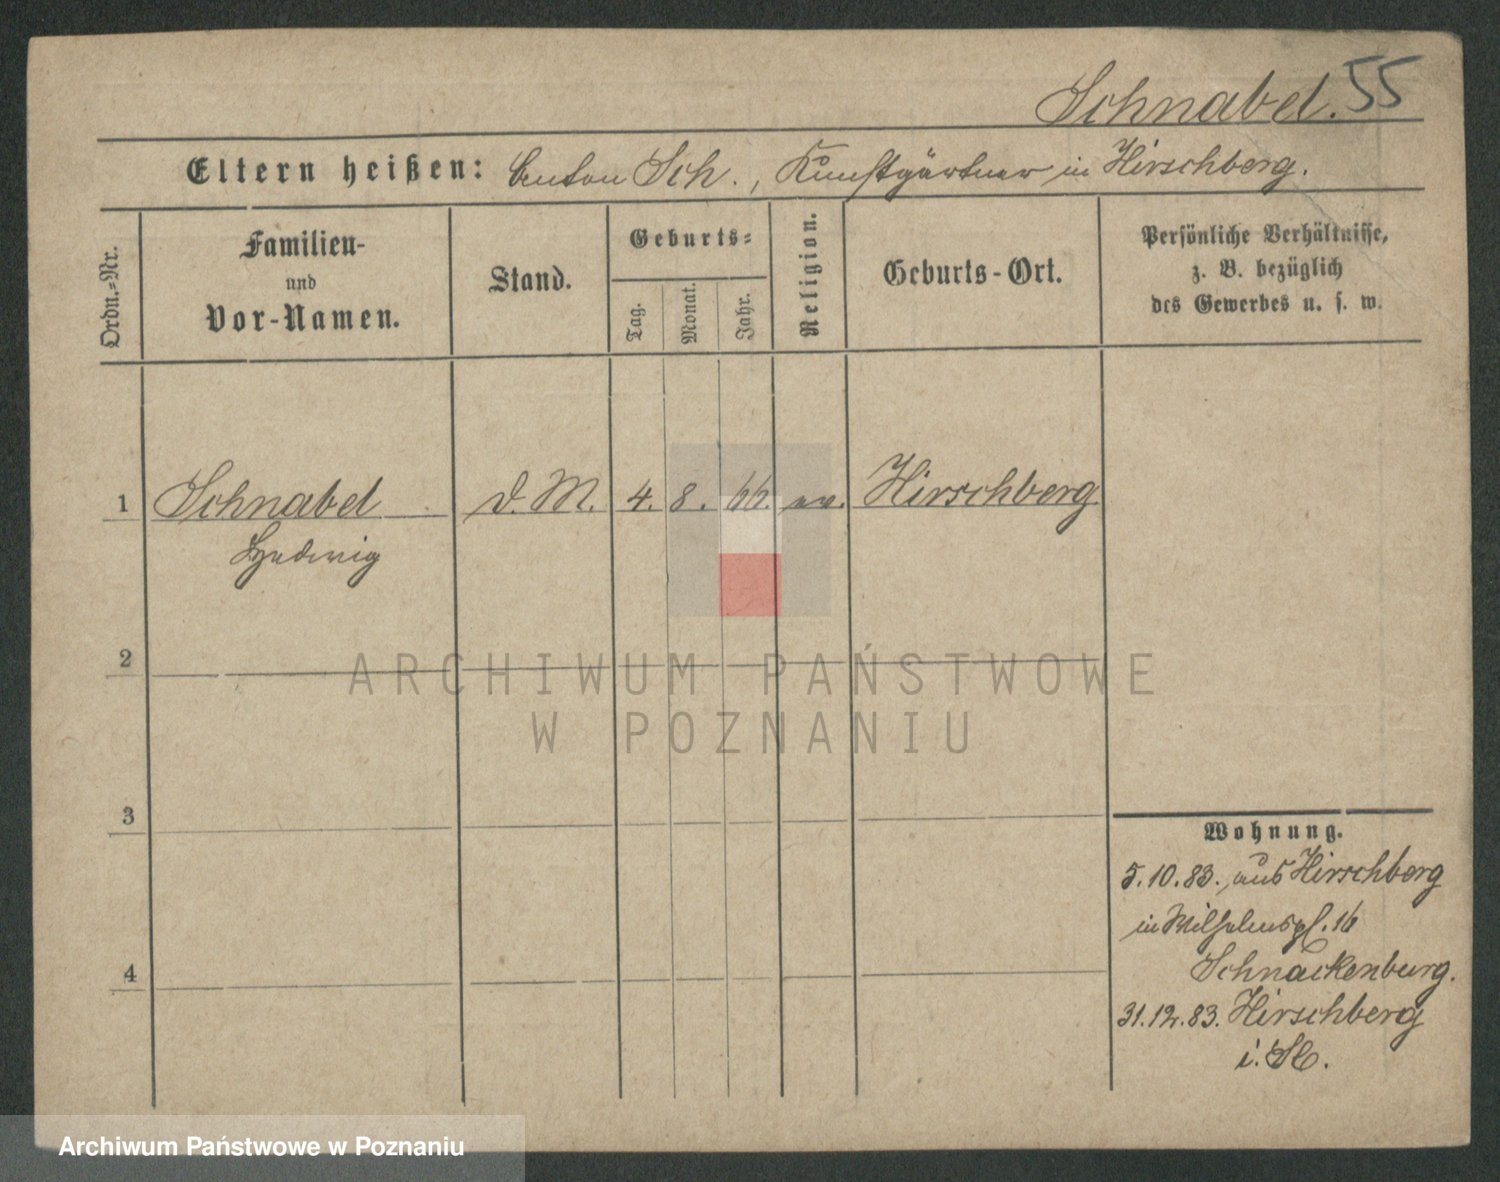 Schnabel. 55
Eltern heißen: Anton Sch., Kunstgärtner in Hirschberg.
Ordn.-Nr.
Familien-
und
Vor-Namen.
Stand.
Geburts-
Tag.
Monat.
Jahr.
Religion.
Geburts-Ort.
Persönliche Verhältnisse,
z. B. bezüglich
des Gewerbes u. s. w.
1 Schnabel d. M. 4. 8. 66. ev. Hirschberg
Hedwig
2
ARCHIWUM PAŃSTWOWE
W POZNANIU
3
Wohnung.
5.10.83. aus Hirschberg
in Wilhelmspl. 16
Schnackenburg.
4
31.12.83. Hirschberg
i. Sl.
Archiwum Państwowe w Poznaniu